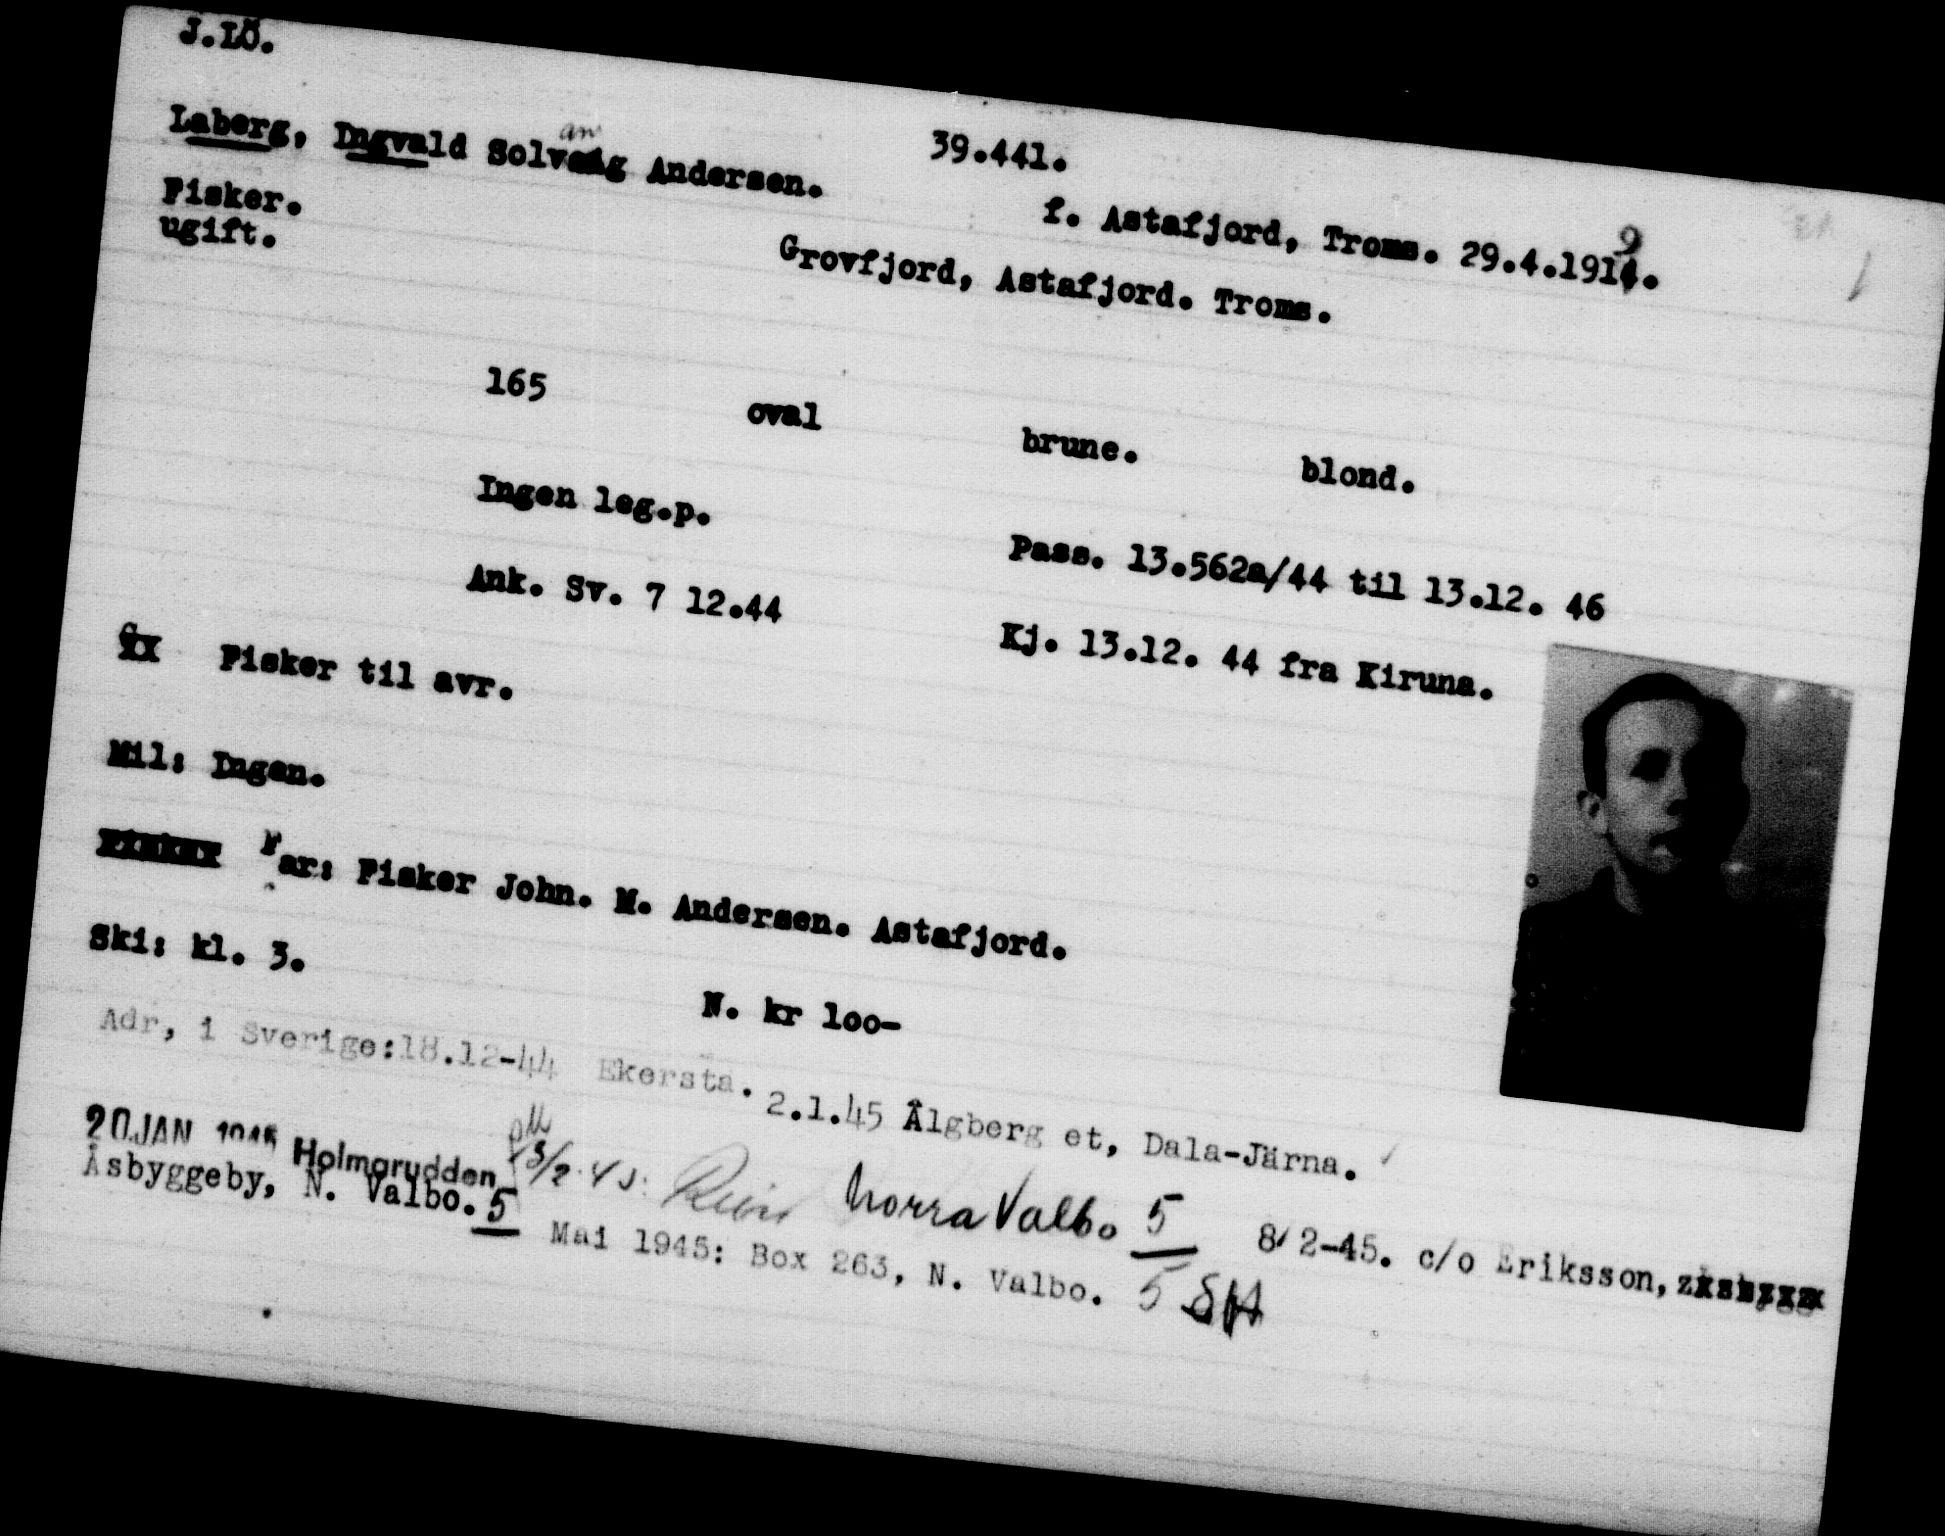 J.LÖ.
Laberg, Ingvald Solvang Andersen. 39.441.
Fisker. f. Astafjord, Troms. 29.4.1919.
ugift. Grovfjord, Astafjord. Troms.
165 oval brune. blond.
Ingen leg.p. Pass. 13.562a/44 til 13.12. 46
Ank. Sv. 7 12.44 Kj. 13.12. 44 fra Kiruna.
Fisker til avr.
Mil: Ingen.
Far: Fisker John. M. Andersen. Astafjord.
Ski: kl. 3.
N. kr loo-
Adr, i Sverige:18.12-44 Ekersta. 2.1.45 Älgberg et, Dala-Järna.
20.JAN 1945 Holmsrudden 13/2.45. Norra Valbo 5 8/2-45. c/o Eriksson,
Åsbyggeby, N. Valbo. 5 Mai 1945: Box 263, N. Valbo. 5